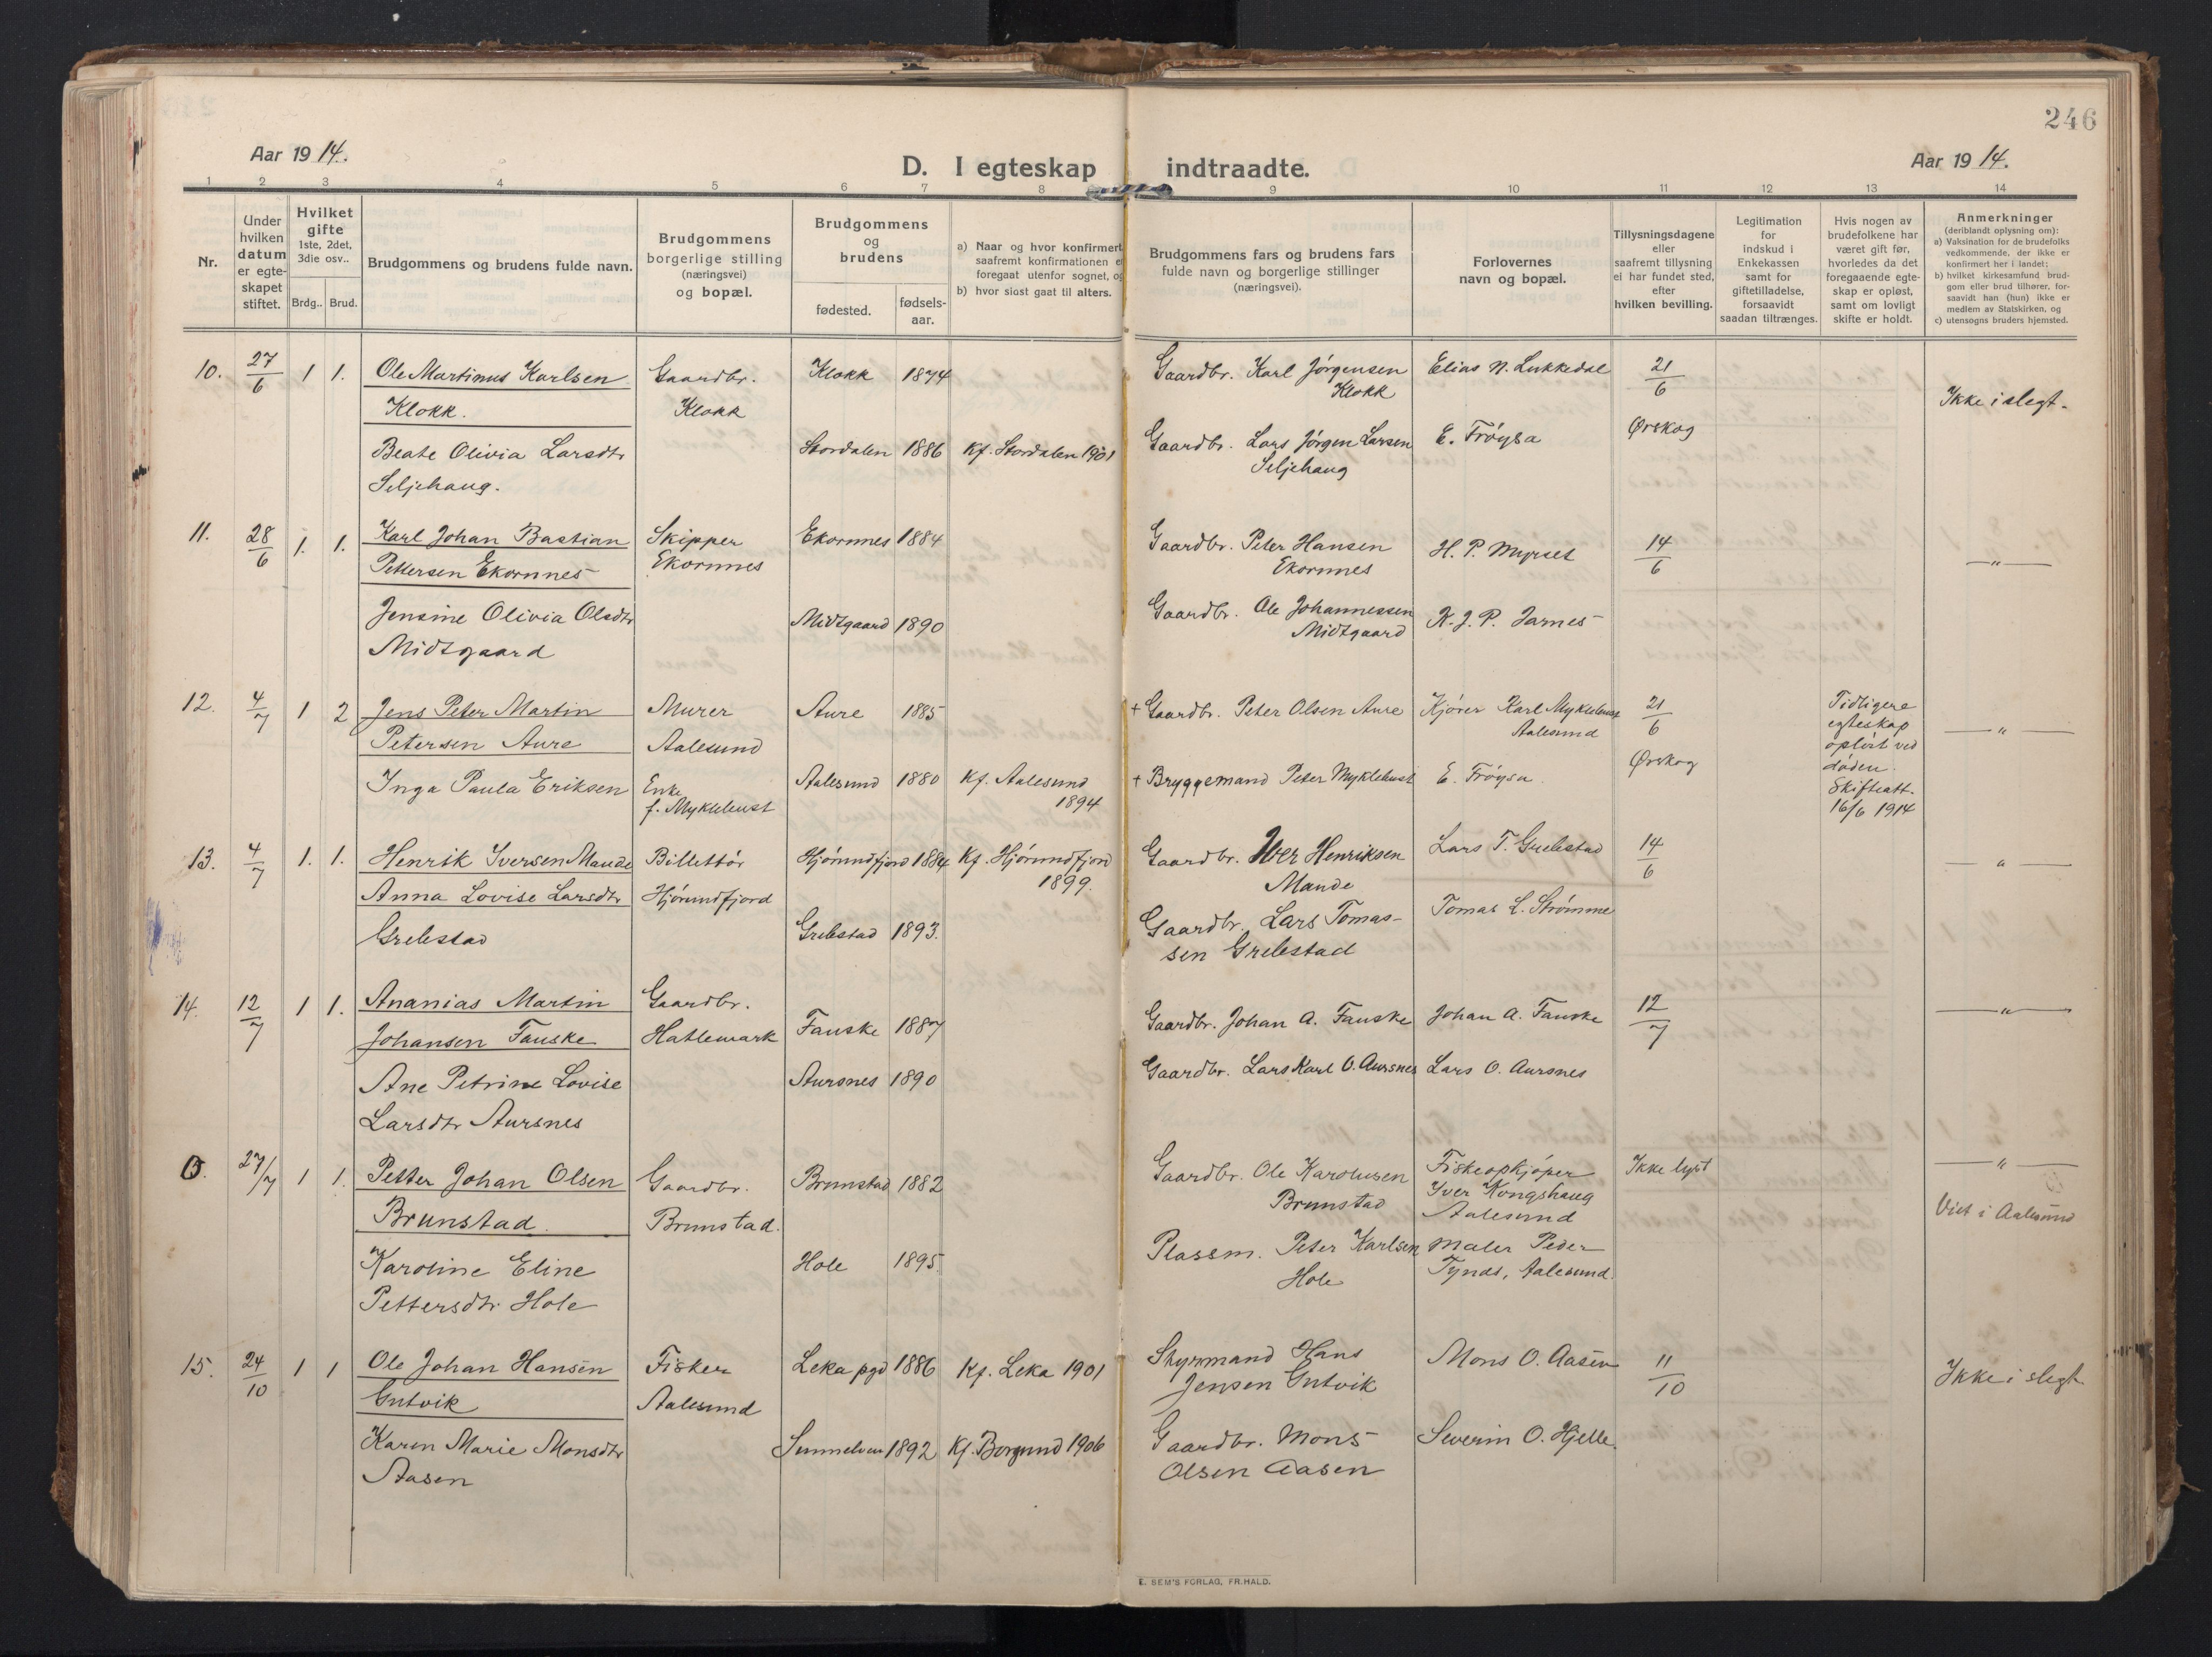 246
Aar 1914.
D. I egteskap indtraadte.
Aar 1914.
1 2 3 4 5 6 7 8 9 10 11 12 13 14
Nr.
Under
hvilken
datum
er egte-
skapet
stiftet.
Hvilket
gifte
1ste, 2det,
3die osv..
Brdg.. Brud.
Brudgommens og brudens fulde navn.
Brudgommens
borgerlige stilling
(næringsvei)
og bopæl.
Brudgommens
og
brudens
fødested.
fødsels-
aar.
a) Naar og hvor konfirmert
saafremt konfirmationen e
foregaat utenfor sognet, og
b) hvor sidst gaat til alters.
Brudgommens fars og brudens fars
fulde navn og borgerlige stillinger
(næringsvei).
Forlovernes
navn og bopæl.
Tillysningsdagene
eller
saafremt tillysning
ei har fundet sted,
efter
hvilken bevilling.
Legitimation
for
indskud i
Enkekassen
samt for
giftetilladelse,
forsaavidt
saadan tiltrænges.
Hvis nogen av
brudefolkene har
været gift før,
hvorledes da det
foregaaende egte-
skap er opløst,
samt om lovligt
skifte er holdt.
Anmerkninger
(deriblandt oplysning om):
a) Vaksination for de brudefolks
vedkommende, der ikke er
konfirmert her i landet;
b) hvilket kirkesamfund brud-
gom eller brud tilhører, for-
saavidt han (hun) ikke er
medlem av Statskirken, og
c) utensogns bruders hjemsted.
10. 27/6 1 1. Ole Martinus Karlsen Gaardbr. Klokk 1874 Gaardbr. Karl Jørgensen Elias N. Lukkedal 21/6
Klokk. Klokk Klokk Ikke i slegt.
Beate Olivia Larsdtr Stordalen 1886 Kf. Stordalen 1901 Gaardbr. Lars Jørgen Larsen E. Frøysa Ørskog
Seljehaug. Seljehaug
11. 28/6 1. 1. Karl Johan Bastian Skipper Ekornnes 1884 Gaardbr. Peter Hansen H. P. Myrset 14/6
Pettersen Ekornnes Ekornnes Ekornnes —"—
Jensine Olivia Olsdtr Midtgaard 1890 Gaardbr. Ole Johannessen K. J. P. Jarnes
Midtgaard Midtgaard
12. 4/7 1 2 Jens Peter Martin Murer Aure 1885 + Gaardbr. Peter Olsen Aure Kjører Karl Myklebust 21/6 Tidligere
Petersen Aure Aalesund Aalesund egteskap —"—
opløst ved
Inga Paula Eriksen Enke Aalesund 1880 Kf. Aalesund + Bryggemand Peter Myklebust E. Frøysa. Ørskog døden.
f. Myklebust 1894 Skifteatt.
16/6 1914
13. 4/7 1. 1. Henrik Iversen Maude Billettør Hjørundfjord 1884 Kf. Hjørundfjord Gaardbr. Iver Henriksen Lars T. Grebstad 14/6 —"—
Anna Lovise Larsdtr Hjørundfjord 1899. Mande
Grebstad Grebstad 1893. Gaardbr. Lars Tomas- Tomas L. Strømme
sen Grebstad
14. 12/7 1 1. Ananias Martin Gaardbr. Fauske 1887 Gaardbr. Johan A. Fauske Johan A. Fauske 12/7 —"—
Johansen Fauske Hatlemark
Ane Petrine Lovise Aursnes 1890 Gaardbr. Lars Karl O. Aursnes Lars O. Aursnes
Larsdtr Aursnes
0. 27/7 1 1. Petter Johan Olsen Gaardbr. Brunstad 1882 Gaardbr. Ole Karolusen Fiskeopkjøper Ikke lyst —"—
Brunstad. Brunstad. Brunstad Iver Kongshaug
Aalesund Viet i Aalesund
Karoline Eline Hole 1895. Plassm. Peter Karlsen Maler Peder
Pettersdtr Hole Hole Tynds, Aalesund.
15. 24/10 1 1 Ole Johan Hansen Fisker Leka pgd 1886 Kf. Leka 1901 Styrmand Hans Mons O. Aasen 11/10 Ikke i slegt
Gutvik Aalesund Jensen Gutvik
Karen Marie Monsdtr 1892 Kf. Borgund 1906 Gaardbr. Mons Severin O. Hjelle.
Aasen Olsen Aasen
E. SEM'S FORLAG, FR.HALD.